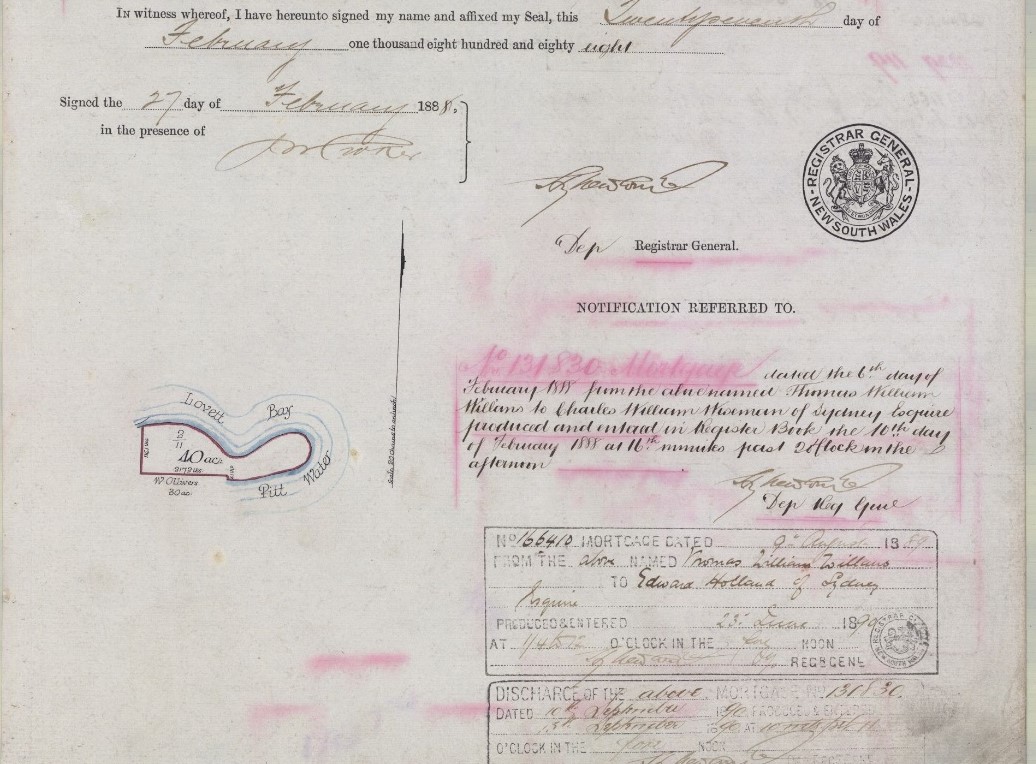 In witness whereof, I have hereunto signed my name and affixed my Seal, this Twentyseventh day of
February one thousand eight hundred and eighty eight
Signed the 27 day of February 1888,
in the presence of
REGISTRAR GENERAL
NEW SOUTH WALES
Dep Registrar General.
NOTIFICATION REFERRED TO.
No 131830 Mortgage dated the 6th day of
February 1888 from the above named Thomas William
Willans to Charles William Wiseman of Sydney Esquire
produced and entered in Register Book the 10th day
of February 1888 at 16th minutes past 2 o'Clock in the
afternoon
Dep Reg Genl
Lovett Bay
Pitt Water
2
11
40 acs
W. Olivers
80 ac
No 166410 MORTGAGE DATED 9th August 1889
FROM THE above NAMED Thomas William Willans
TO Edward Holland of Sydney
Esquire
PRODUCED & ENTERED 23rd June 1890
AT O'CLOCK IN THE NOON
REG GENL
DISCHARGE OF THE above MORTGAGE No 131830.
DATED 10th September 1890 PRODUCED & ENTERED
13th September 1890 AT
O'CLOCK IN THE fore NOON